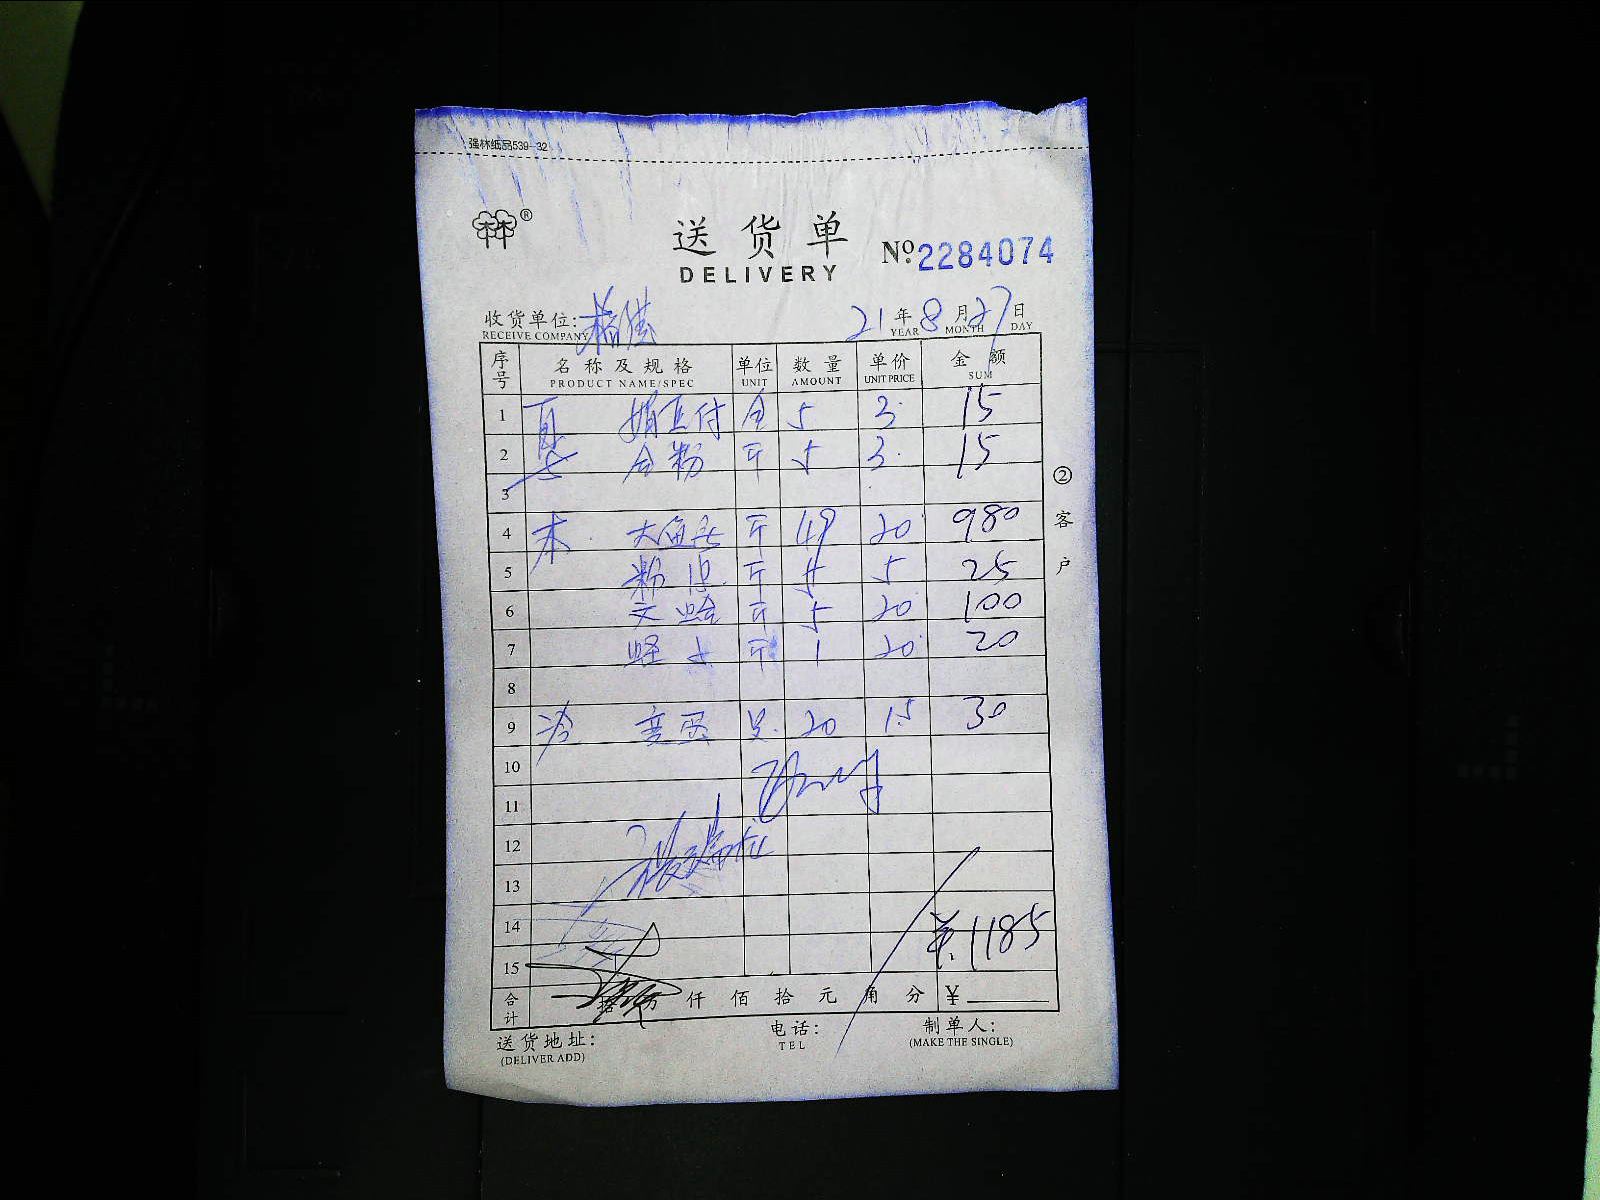 强林纸品539-32
®
送货单
DELIVERY
No: 2284074
收货单位:
RECEIVE COMPANY
21年8月27日
YEAR MONTH DAY
序号 名称及规格 单位 数量 单价 金额
PRODUCT NAME/SPEC UNIT AMOUNT UNIT PRICE SUM
1 5 3. 15
2 粉 斤 5 3. 15
3
4 本 大鱼头 斤 49 20 980
5 粉 斤 5 5 25
6 文蛤 斤 5 20 100
7 蛏 斤 1 20 20
8
9 冷 变蛋 只. 20 1.5 30
10
11
12
13
14
15
¥.1185
合计 拾 万 仟 佰 拾 元 角 分 ¥
②客户
送货地址:
(DELIVER ADD)
电话:
TEL
制单人:
(MAKE THE SINGLE)